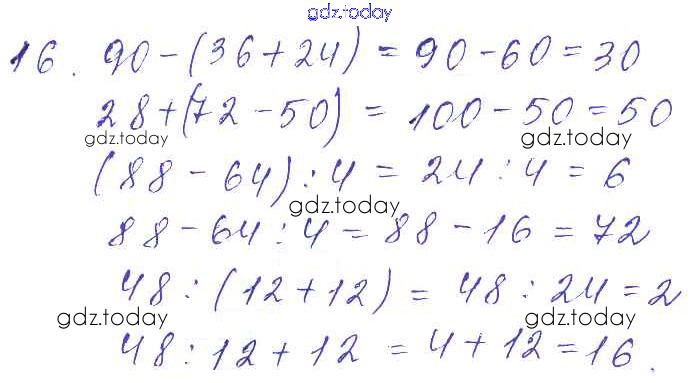 gdz.today
16. 90-(36+24) = 90-60=30
28+(72-50) = 100-50=50
gdz.today gdz.today
(88-64):4 = 24:4=6
gdz.today
88-64:4=88-16=72
48:(12+12) = 48:24=2
gdz.today gdz.today
48:12+12 = 4+12=16.